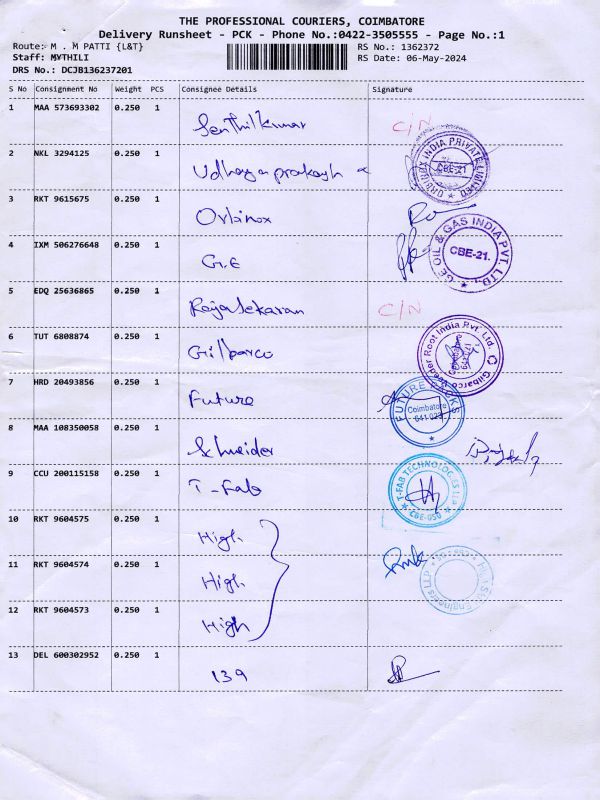 THE PROFESSIONAL COURIERS, COIMBATORE
Delivery Runsheet - PCK - Phone No.:0422-3505555 - Page No.:1
Route: M . M PATTI {L&T} RS No.: 1362372
Staff: MUTHILI RS Date: 06-May-2024
DRS No.: DCJB136237201
S No Consignment No Weight PCS Consignee Details Signature
1 MAA 573693302 0.250 1 Senthilkumar C/N
2 NKL 3294125 0.250 1 Udhayaprakash ORBINOX INDIA PRIVATE LIMITED CBE-21
3 RKT 9615675 0.250 1 Orbinox
4 IXM 506276648 0.250 1 G.E GE OIL & GAS INDIA PVT. LTD., CBE-21.
5 EDQ 25636865 0.250 1 Rajasekaran C/N
6 TUT 6808874 0.250 1 Gilbarco Gilbarco Veeder Root India Pvt. Ltd.
7 HRD 20493856 0.250 1 Future FUTURE Coimbatore
8 MAA 108350058 0.250 1 Schneider
9 CCU 200115158 0.250 1 T-Fab T-FAB TECHNOLOGIES LLP CBE-050
10 RKT 9604575 0.250 1 High
11 RKT 9604574 0.250 1 High Engineers LLP
12 RKT 9604573 0.250 1 High
13 DEL 600302952 0.250 1 139